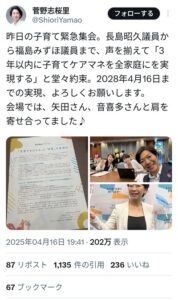 菅野志桜里
@ShioriYamao
フォローする
昨日の子育て緊急集会。長島昭久議員か
ら福島みずほ議員まで、声を揃えて「3
年以内に子育てケアマネを全家庭にを実
現する」と堂々約束。2028年4月16日ま
での実現、よろしくお願いします。
会場では、矢田さん、音喜多さんと肩を
寄せ合ってました♪
2025年04月16日 19:41・202万 表示
87 リポスト 1,135 件の引用 236 いいね
67 ブックマーク